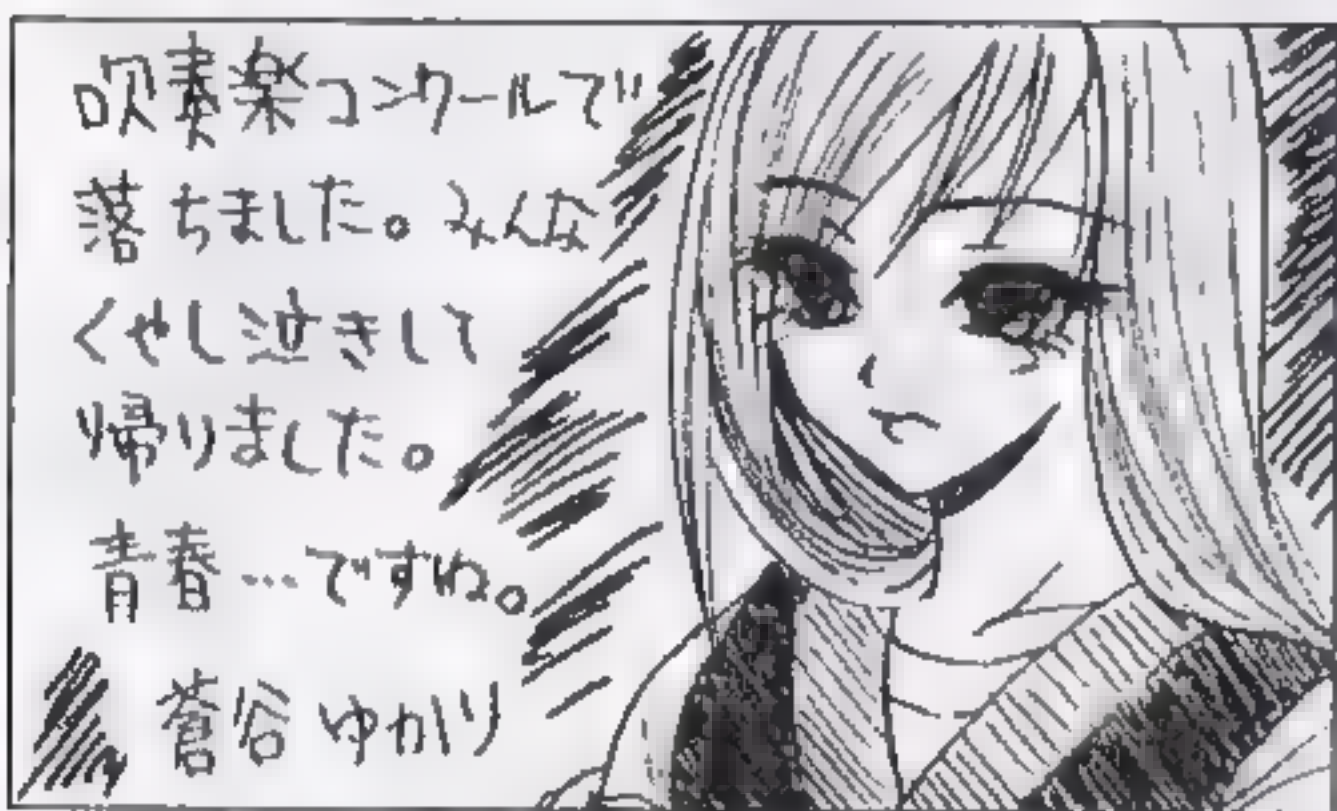 吹奏楽コンクールで
落ちました。みんな
くやし泣きして
帰りました。
青春…ですね。
蒼谷ゆかり